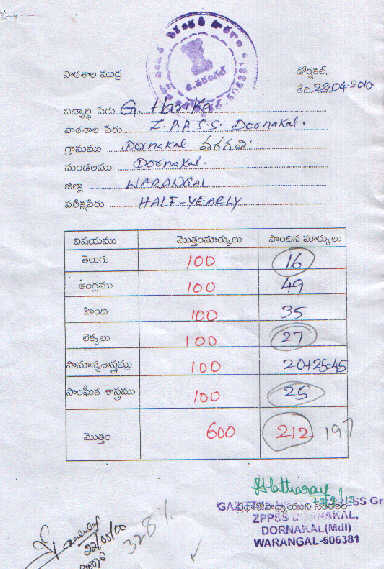 పాఠశాల ముద్ర
డోర్నకల్,
తేది.22.04.2010
విద్యార్థి పేరు G. Harika
పాఠశాల పేరు Z.P.P.S.S. Dornakal.
గ్రామము Dornakal
మండలము Dornakal.
జిల్లా WARANGAL
పరీక్షపేరు HALF-YEARLY
విషయము మొత్తంమార్కులు పొందిన మార్కులు
తెలుగు 100 16
ఆంగ్లము 100 49
హింది 100 35
లెక్కలు 100 27
సామాన్యశాస్త్రము 100 20+25=45
సాంఘీక శాస్త్రము 100 25
మొత్తం 600 212 197
ప్రధానోపాధ్యాయుని సంతకం
ZPPSS DORNAKAL,
DORNAKAL(Mdl)
WARANGAL-506381
328/